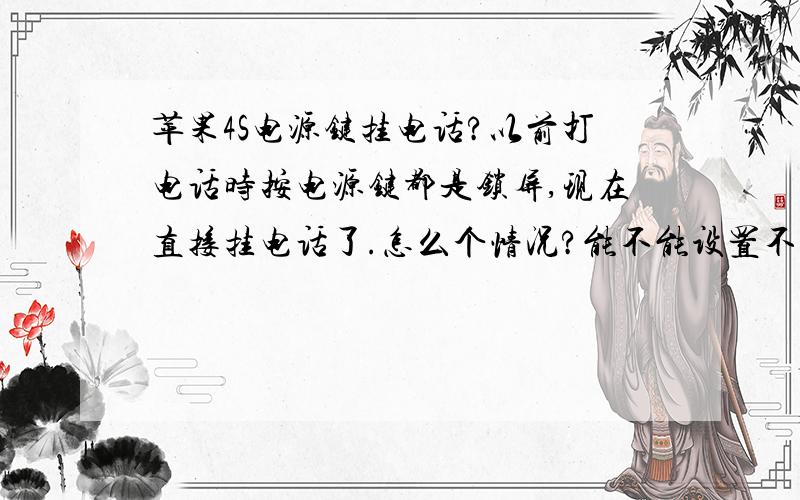 苹果4S电源键挂电话?以前打
电话时按电源键都是锁屏,现在
直接挂电话了.怎么个情况?能不能设置不